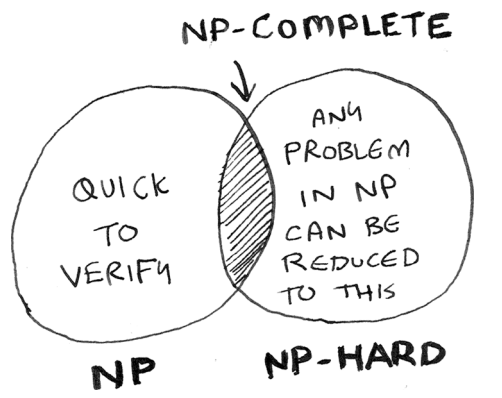 NP-COMPLETE
QUICK
TO
VERIFY
ANY
PROBLEM
IN NP
CAN BE
REDUCED
TO THIS
NP
NP-HARD